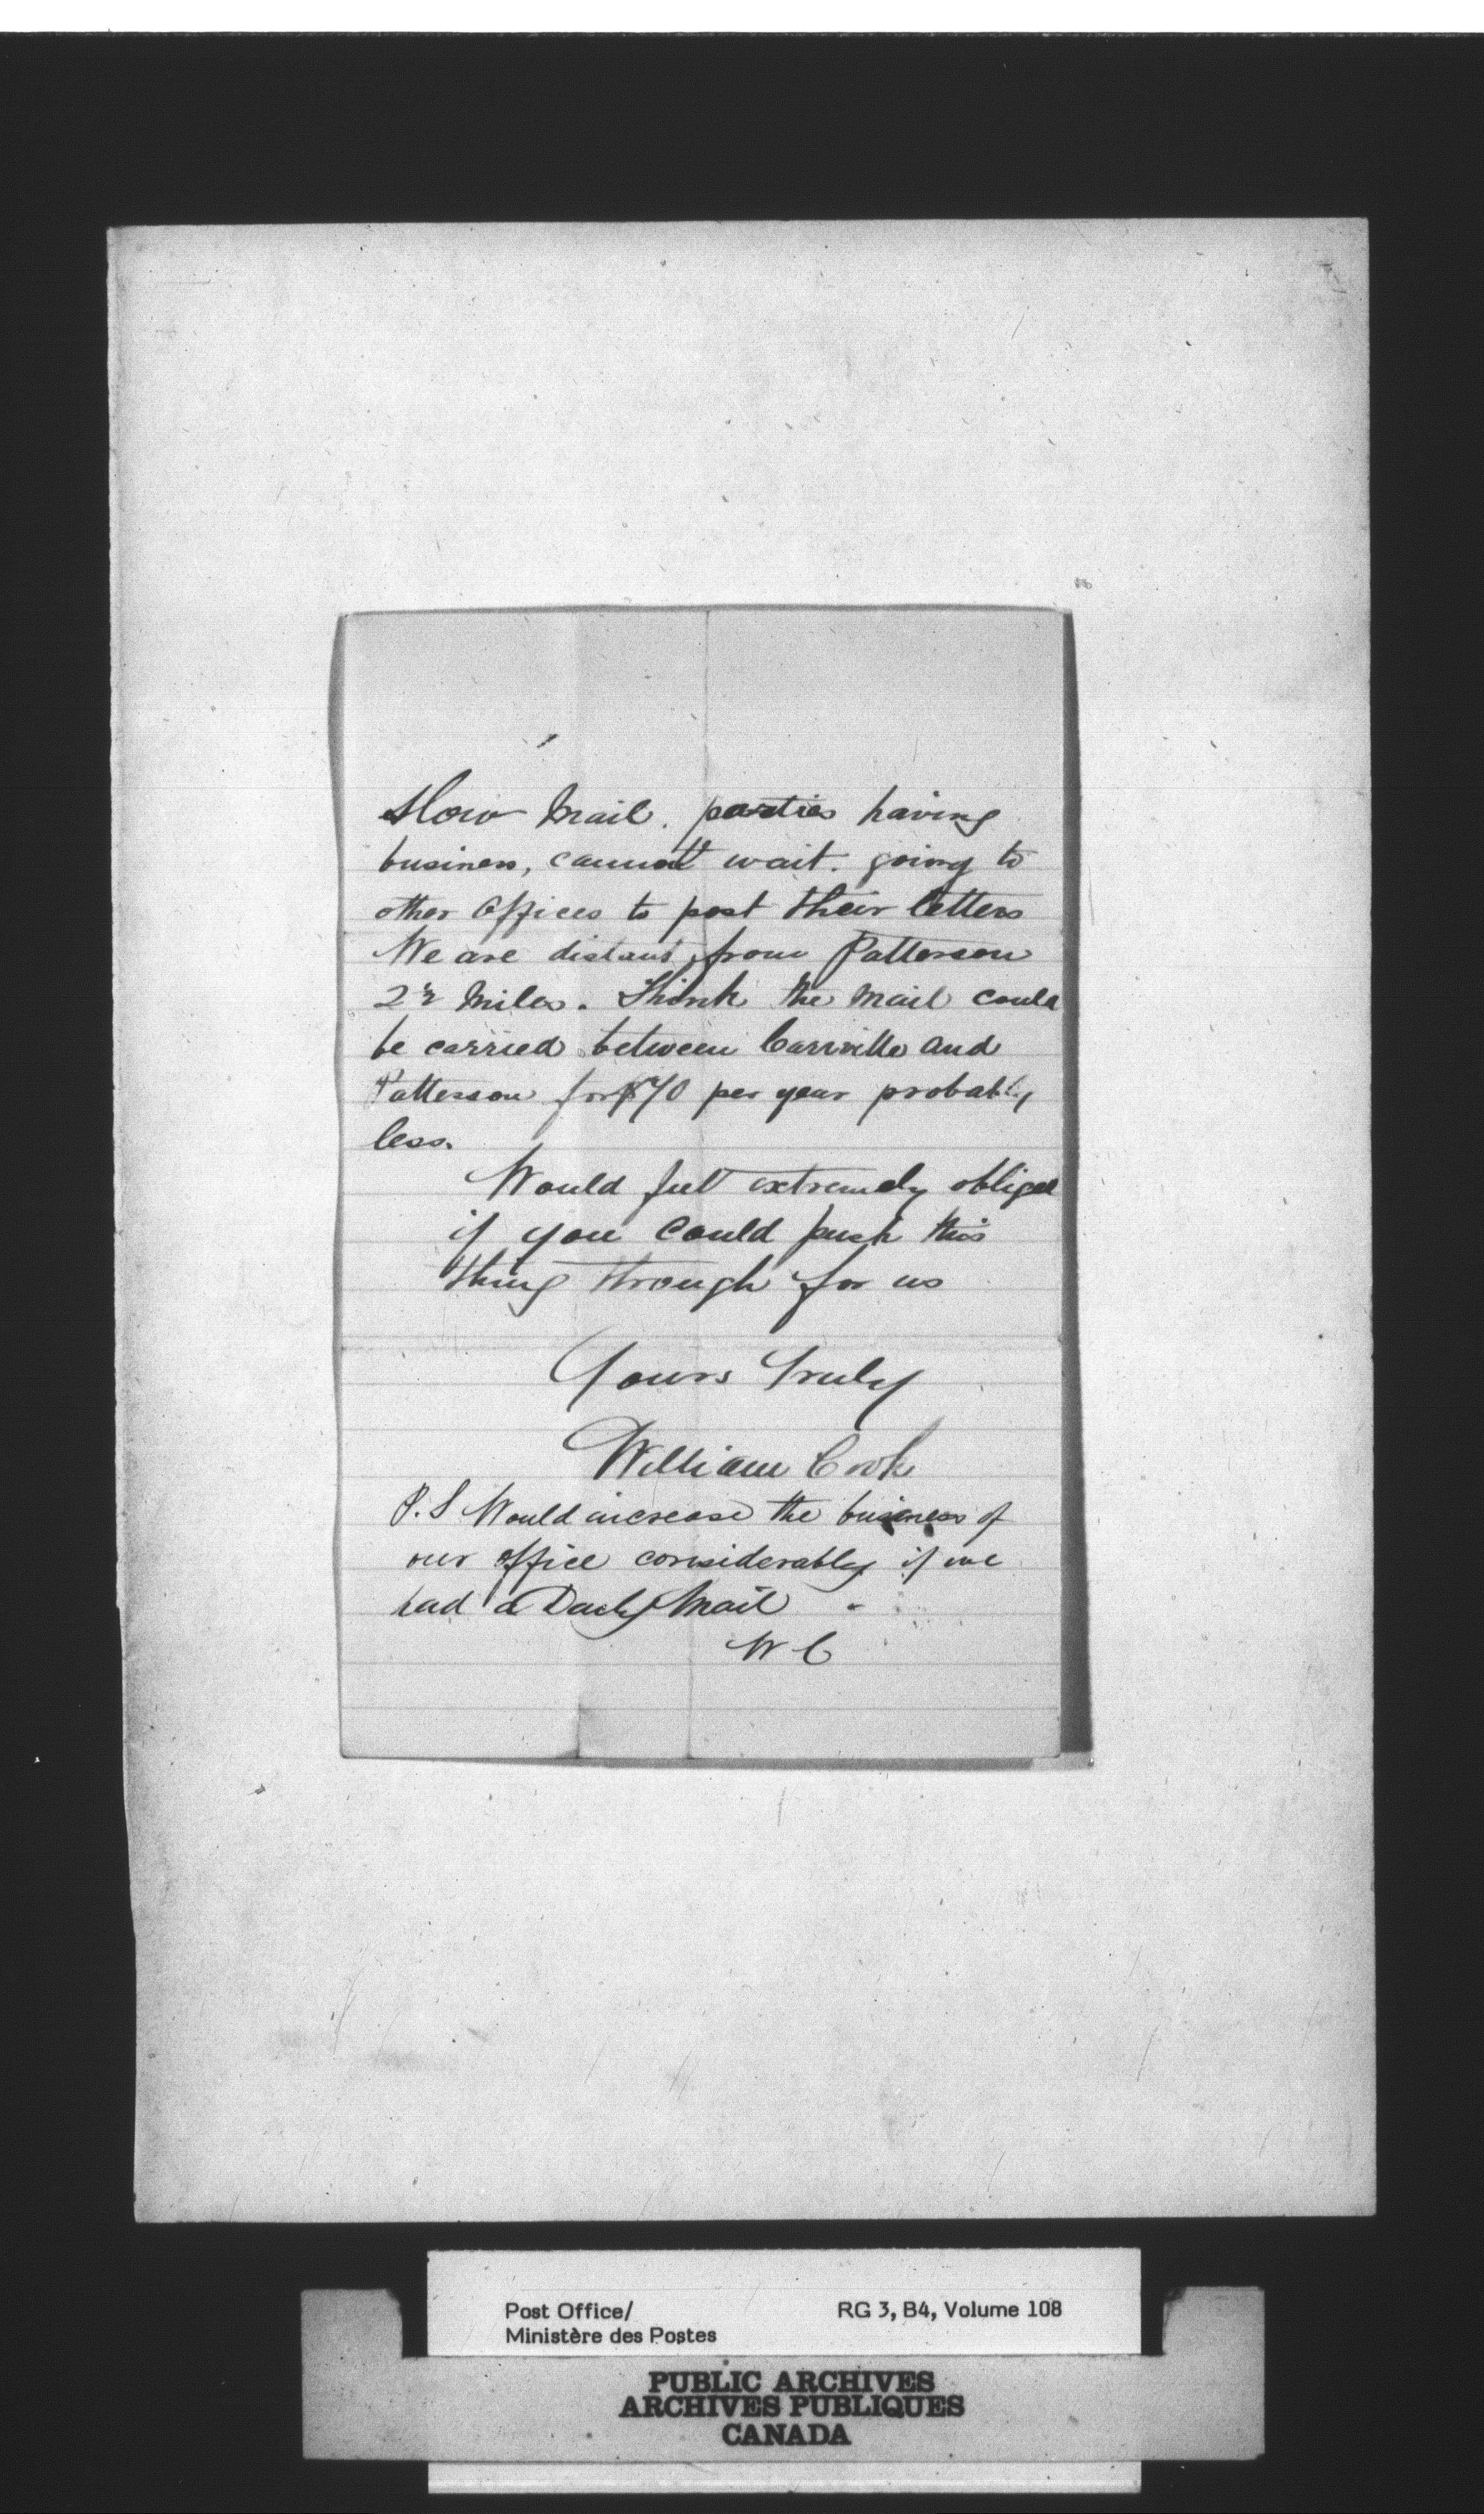 Slow Mail. parties having
business, cannot wait. going to
other Offices to post their letters
We are distant from Patterson
2½ Miles. Think the Mail could
be carried between Carrville and
Patterson for $70 per year probably
less.
Would feel extremely obliged
if you could push this
thing through for us
Yours Truly
William Cook
P.S Would increase the business of
our office considerably if we
had a Daily Mail
W C
Post Office/ RG 3, B4, Volume 108
Ministère des Postes
PUBLIC ARCHIVES
ARCHIVES PUBLIQUES
CANADA